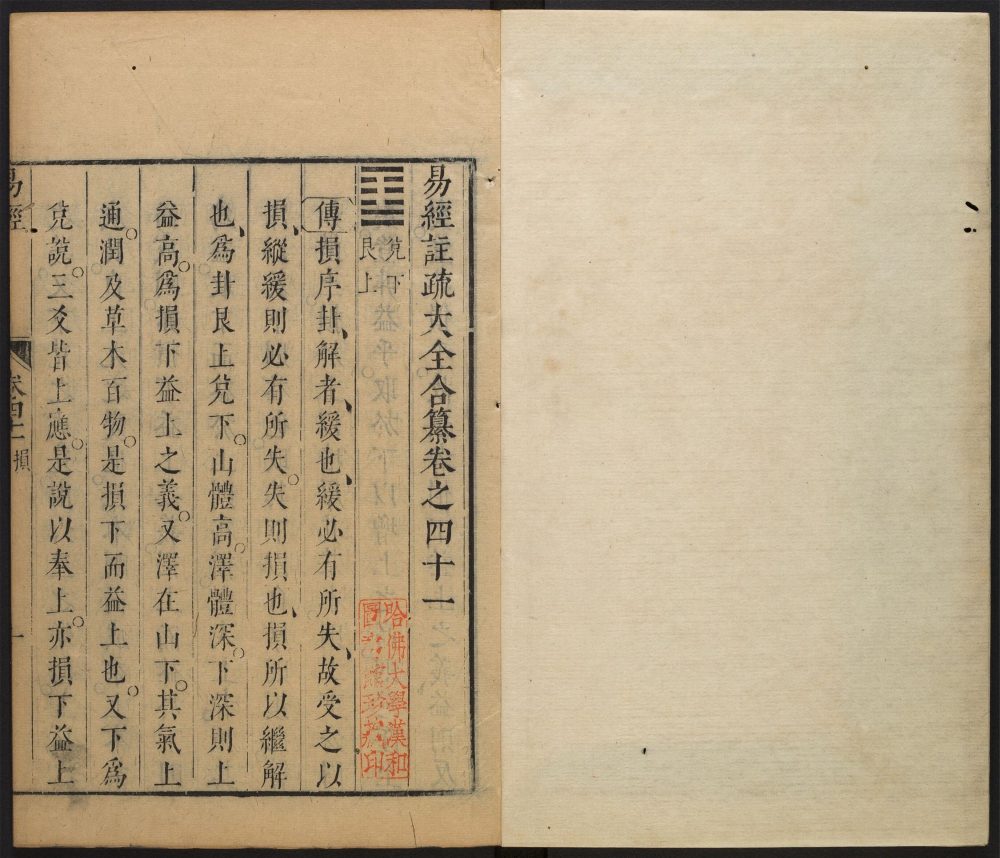 易經註疏大全合纂卷之四十一
兌下
艮上
傳損序卦、解者、緩也、緩必有所失、故受之以
損、縱緩則必有所失。失則損也、損所以繼解
也、爲卦艮上兌下。山體高。澤體深。下深則上
益高。爲損下益上之義。又澤在山下。其氣上
通。潤及草木百物。是損下而益上也。又下爲
兌說。三爻皆上應。是說以奉上。亦損下益上
易經
卷四十一
損
一
哈佛大學漢和
圖書館珍藏印